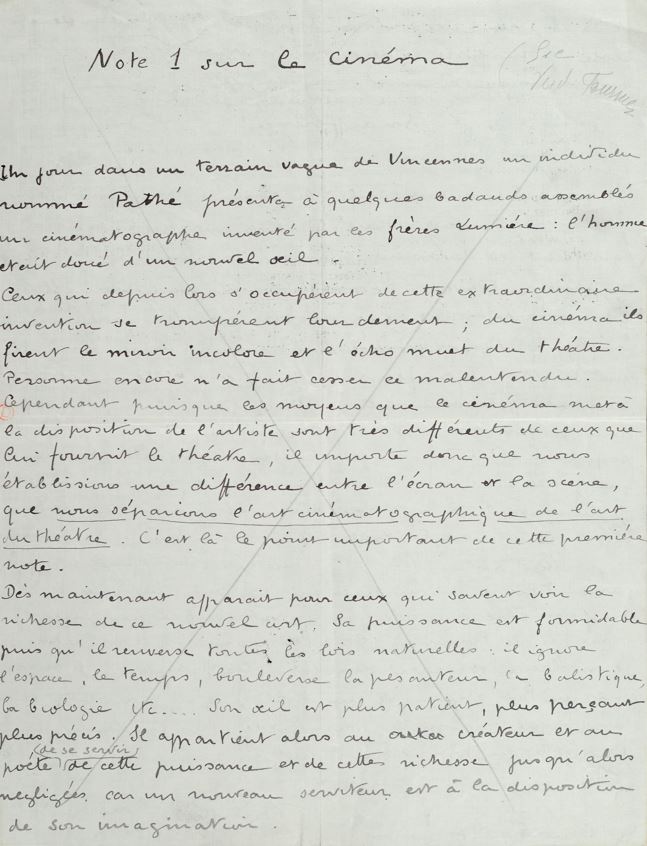 Note 1 sur le cinéma
Un jour dans un terrain vague de Vincennes un individu
nommé Pathé présenta à quelques badauds assemblés
un cinématographe inventé par les frères Lumière : l'homme
etait doué d'un nouvel œil.
Ceux qui depuis lors s'occupérent de cette extraordinaire
invention se trompérent lourdement ; du cinéma ils
firent le miroir incolore et l'écho muet du théâtre.
Personne encore n'a fait cesser ce malentendu.
Cependant puisque les moyens que le cinéma met à
la disposition de l'artiste sont très différents de ceux que
lui fournit le théatre, il importe donc que nous
établissions une différence entre l'écran et la scène,
que nous séparions l'art cinématographique de l'art
du théatre. C'est là le point important de cette première
note.
Dès maintenant apparait pour ceux qui savent voir la
richesse de ce nouvel art. Sa puissance est formidable
puis qu'il renverse toutes les lois naturelles : il ignore
l'espace, le temps, bouleverse la pesanteur, la balistique,
la biologie etc.... Son œil est plus patient, plus perçant
plus précis. Il appartient alors au créateur et au
(de se servir)
poète de cette puissance et de cette richesse jusqu'alors
negligées, car un nouveau serviteur est à la disposition
de son imagination.